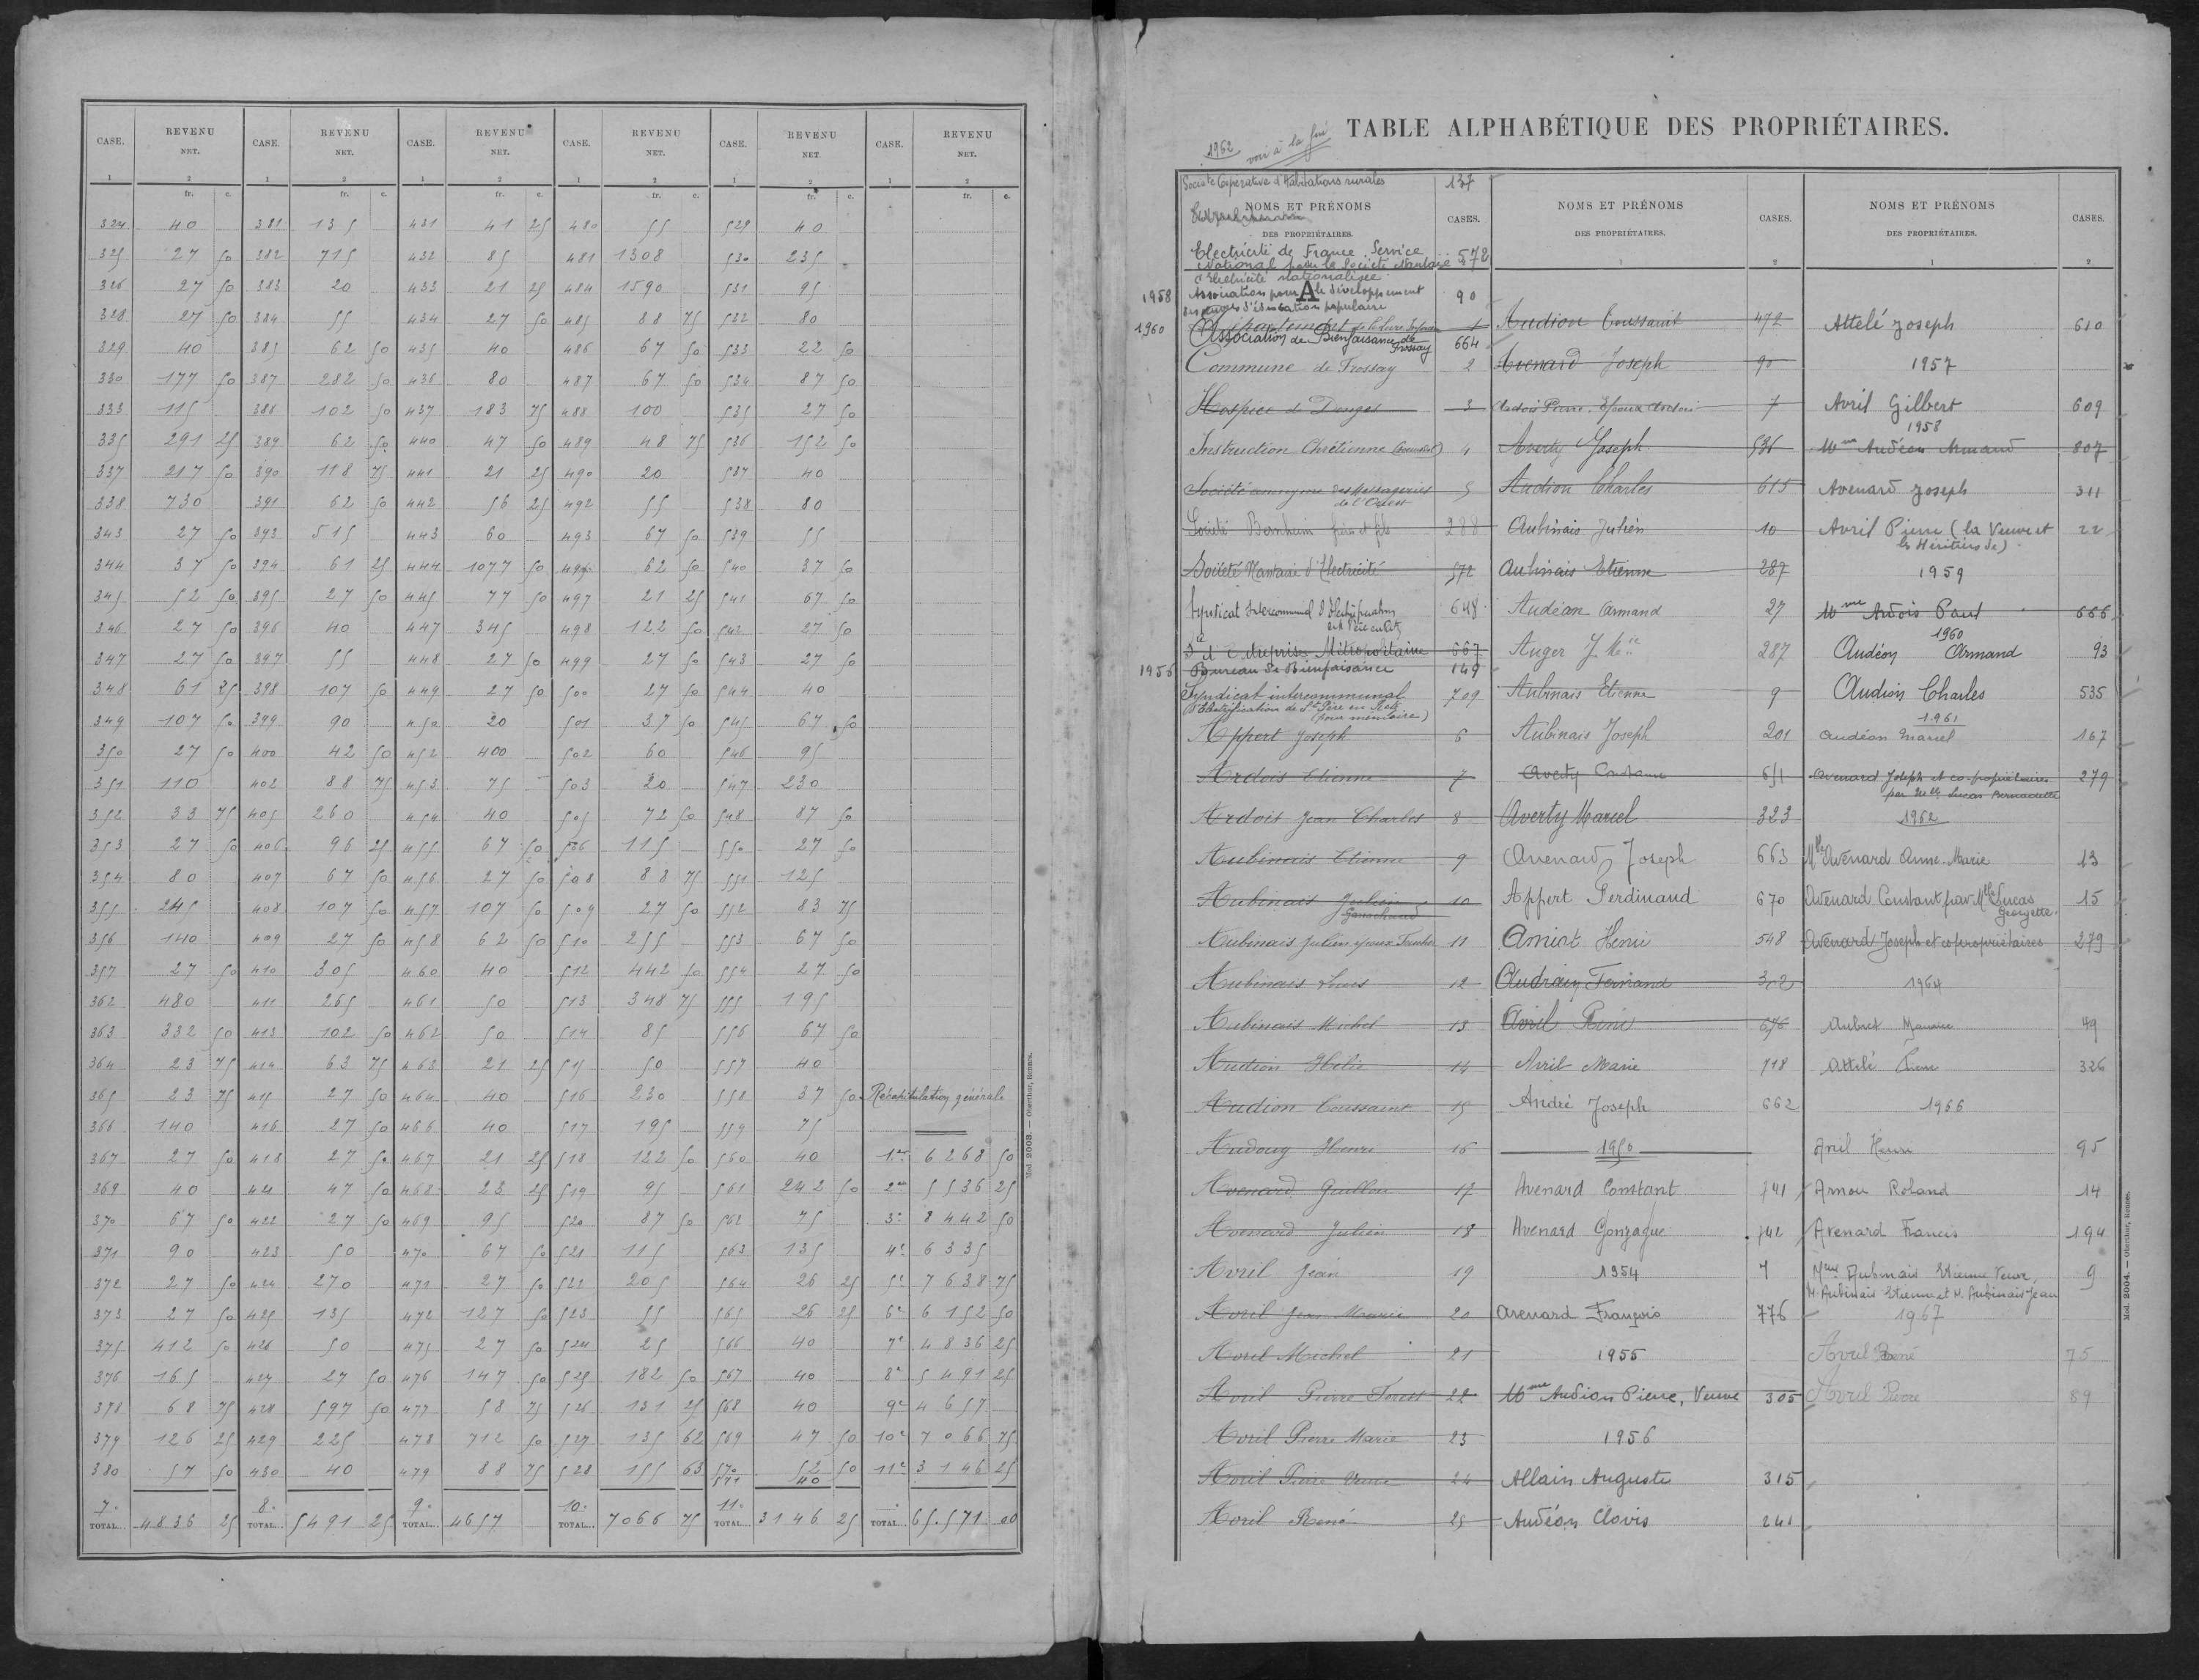 CASE. REVENU NET. CASE. REVENU NET. CASE. REVENU NET. CASE. REVENU NET. CASE. REVENU NET. CASE. REVENU NET.
1 2 1 2 1 2 1 2 1 2 1 2
fr. c. fr. c. fr. c. fr. c. fr. c. fr. c.
324 40 381 135 431 41 25 480 55 529 40
325 27 50 382 715 432 85 481 1308 530 235
326 27 50 383 20 433 21 25 484 1590 531 95
328 27 50 384 55 434 27 50 485 88 75 532 80
329 40 385 62 50 435 40 486 67 50 533 22 50
330 177 50 387 282 50 436 80 487 67 50 534 87 50
333 115 388 102 50 437 183 75 488 100 535 27 50
335 291 25 389 62 50 440 47 50 489 48 75 536 152 50
337 217 50 390 118 75 441 21 25 490 20 537 40
338 730 391 62 50 442 56 25 492 55 538 80
343 27 50 393 515 443 60 493 67 50 539 55
344 37 50 394 61 25 444 1077 50 496 62 50 540 37 50
345 52 50 395 27 50 445 77 50 497 21 25 541 67 50
346 27 50 396 40 447 345 498 122 50 542 27 50
347 27 50 397 55 448 27 50 499 27 50 543 27 50
348 61 25 398 107 50 449 27 50 500 27 50 544 40
349 107 50 399 90 450 20 501 37 50 545 67 50
350 27 50 400 42 50 452 400 502 60 546 95
351 110 402 88 75 453 75 503 20 547 230
352 33 75 405 260 454 40 505 72 50 548 87 50
353 27 50 406 96 25 455 67 50 506 115 550 27 50
354 80 407 67 50 456 27 50 508 88 75 551 125
355 245 408 107 50 457 107 50 509 27 50 552 83 75
356 140 409 27 50 458 62 50 510 255 553 67 50
357 27 50 410 305 460 40 512 442 50 554 27 50
362 480 411 265 461 50 513 348 75 555 195
363 332 50 413 102 50 462 50 514 85 556 67 50
364 23 75 414 63 75 463 21 25 515 50 557 40
365 23 75 415 27 50 464 40 516 230 558 37 50 Récapitulation générale
366 140 416 27 50 466 40 517 195 559 75
367 27 50 418 27 50 467 21 25 518 122 50 560 40 1re 6268 50
369 40 421 47 50 468 23 25 519 95 561 242 50 2me 5536 25
370 67 50 422 27 50 469 95 520 87 50 562 75 3e 8442 50
371 90 423 50 470 67 50 521 115 563 135 4e 6335
372 27 50 424 270 471 27 50 522 205 564 26 25 5e 7638 75
373 27 50 425 135 472 127 50 523 55 565 26 25 6e 6152 50
375 412 50 426 50 475 27 50 524 25 566 40 7e 4836 25
376 165 427 27 50 476 147 50 525 182 50 567 40 8e 5491 25
378 68 75 428 597 50 477 58 75 526 131 25 568 40 9e 4657
379 126 25 429 225 478 712 50 527 135 62 569 47 50 10e 7066 75
380 57 50 430 40 479 88 75 528 155 63 570 52 50 11e 3146 25
571 40
7e TOTAL... 4836 25 8e TOTAL... 5491 25 9e TOTAL... 4657 10e TOTAL... 7066 75 11e TOTAL... 3146 25 TOTAL... 65.571 00
Mod. 2003. — Oberthur, Rennes.
TABLE ALPHABÉTIQUE DES PROPRIÉTAIRES.
1962 voir à la fin
Société Coopérative d'Habitations rurales 137
NOMS ET PRÉNOMS DES PROPRIÉTAIRES. CASES.
Electricité de France. Service 572
National pour la Société Nantaise
d'Electricité nationalisée
A
1958 Association pour le développement 90
des œuvres d'éducation populaire
1960 1
Association de Bienfaisance de Frossay 664
Commune de Frossay 2
Hospice de Donges 3
Instruction Chrétienne 4
Société anonyme des Messageries 5
de l'Ouest
Société Bernheim frères et fils 288
Société Nantaise d'Electricité 572
Syndicat Intercommunal d'Electrification 648
Sté Entreprise Métropolitaine 667
1956 Bureau de Bienfaisance 149
Syndicat intercommunal 709
d'Electrification de St Père en Retz
(pour mémoire)
Appert Joseph 6
Ardois Etienne 7
Ardois Jean Charles 8
Aubinais Etienne 9
Aubinais Julien 10
Aubinais Julien époux Foucher 11
Aubinais Louis 12
Aubinais Michel 13
Audion Hélie 14
Audion Toussaint 15
Audouy Henri 16
Avenard Guillou 17
Avenard Julien 18
Avril Jean 19
Avril Jean Marie 20
Avril Michel 21
Avril Pierre Forest 22
Avril Pierre Marie 23
Avril Pierre Veuve 24
Avril René 25
NOMS ET PRÉNOMS DES PROPRIÉTAIRES. CASES.
1 2
Audion Toussaint 472
Avenard Joseph 90
Ardois Pierre, Epoux 7
Averty Joseph 536
Audion Charles 615
Aubinais Julien 10
Aubinais Etienne 287
Audéan Armand 27
Auger 287
Aubinais Etienne 9
Aubinais Joseph 201
Averty Constance 651
Averty Marcel 323
Avenard Joseph 663
Appert Ferdinand 670
Amiot Henri 548
Audrain Fernand 302
Avril René 676
Avril Marie 718
André Joseph 662
1950
Avenard Constant 741
Avenard Gonzague 742
1954
Avenard François 776
1955
Mme Audion Pierre, Veuve 305
1956
Allain Auguste 315
Audéon Clovis 241
NOMS ET PRÉNOMS DES PROPRIÉTAIRES. CASES.
1 2
Attelé Joseph 610
1957
Avril Gilbert 609
1958
Mme Audéon Armand 807
Avenard Joseph 311
Avril Pierre (la Veuve et 22
les Héritiers de)
1959
Mme Ardois Paul 666
1960
Audéon Armand 93
Audion Charles 535
1961
Audéon Marcel 167
Avenard Joseph et co-propriétaires 279
par Melle Lucas Bernadette
1962
Mlle Avenard Anne-Marie 13
Avenard Constant par Mlle Lucas 15
Georgette
Avenard Joseph et copropriétaires 279
1964
Aubret Maurice 49
Attelé Pierre 326
1966
Avril Henri 95
Arnou Roland 14
Avenard Francis 194
Mme Aubinais Etienne Veuve, 9
M. Aubinais Etienne et M. Aubinais Jean
1967
Avril René 75
Avril Pierre 89
Mod. 2004. — Oberthur, Rennes.